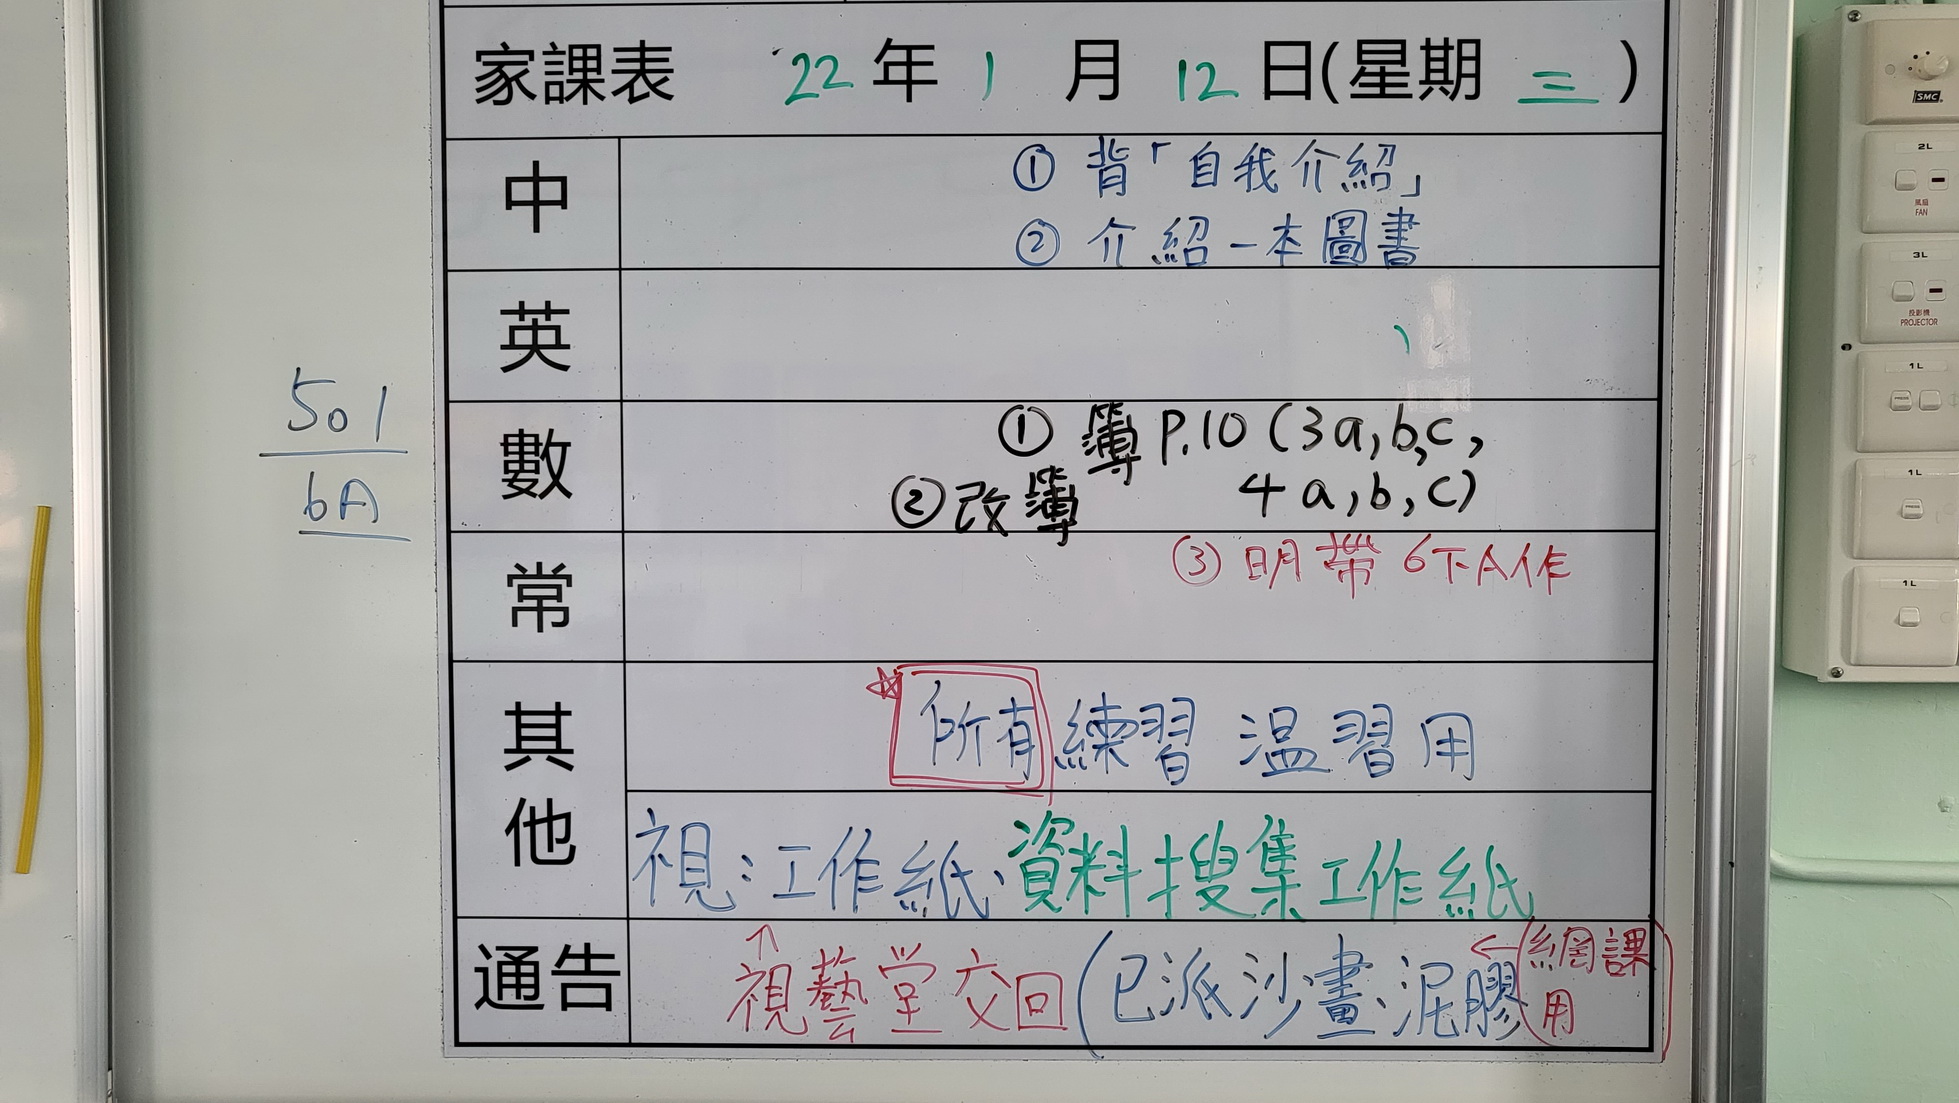 家課表 22年1月12日(星期三)
中
① 背「自我介紹」
② 介紹一本圖書
英
數
① 簿 P.10 (3a,b,c,
4a,b,c)
② 改簿
常
③ 明帶 6下A作
其他
所有練習 温習用
視:工作紙、資料搜集工作紙
通告
↑
視藝堂交回(已派沙畫、泥膠
←(網課
用)
501
6A
SMC
2L
風扇
FAN
3L
投影機
PROJECTOR
1L
PRESS
1L
PRESS
1L